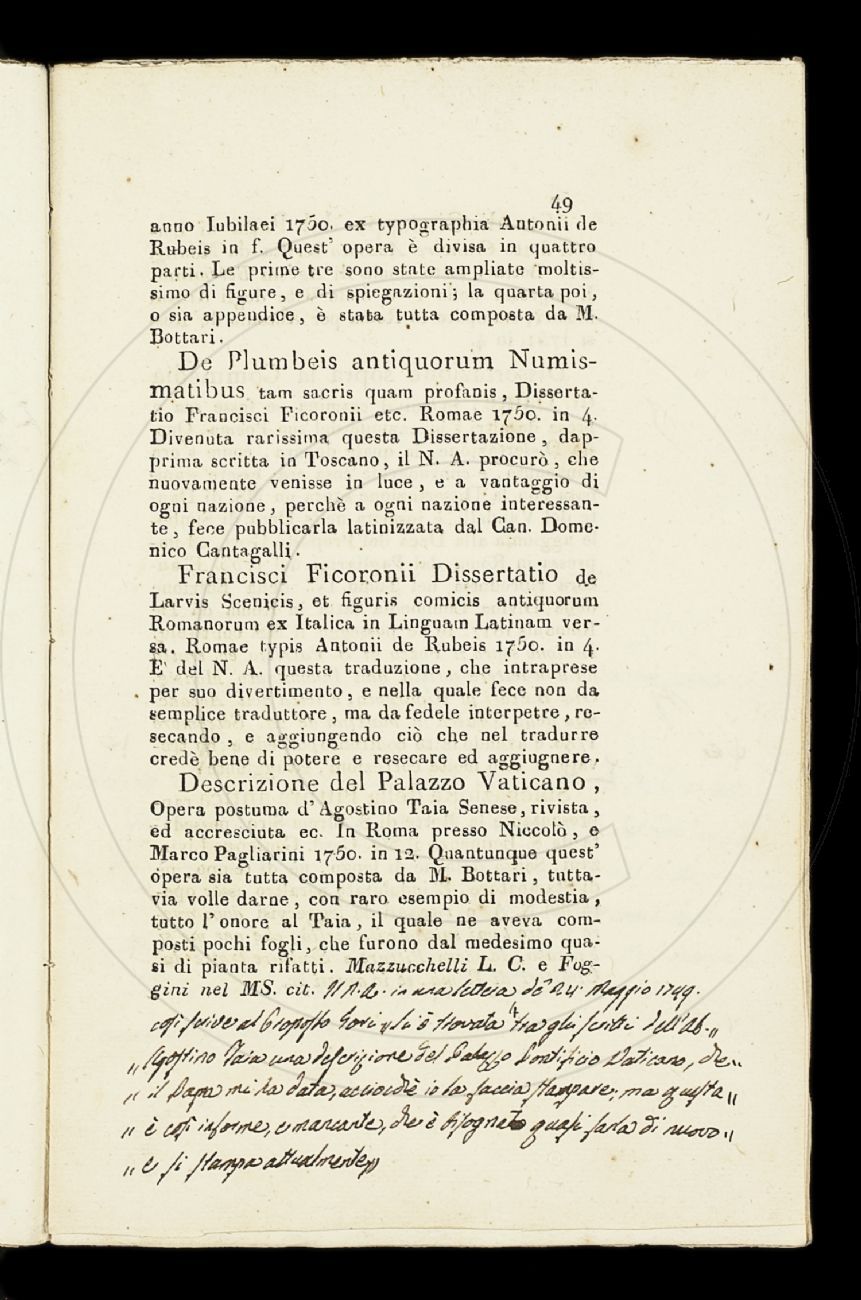 49
anno Iubilaei 1750. ex typographia Antonii de
Rubeis in f. Quest' opera è divisa in quattro
parti. Le prime tre sono state ampliate moltis-
simo di figure, e di spiegazioni; la quarta poi,
o sia appendice, è stata tutta composta da M.
Bottari.
De Plumbeis antiquorum Numis-
matibus tam sacris quam profanis, Disserta-
tio Francisci Ficoronii etc. Romae 1750. in 4.
Divenuta rarissima questa Dissertazione, dap-
prima scritta in Toscano, il N. A. procurò, che
nuovamente venisse in luce, e a vantaggio di
ogni nazione, perchè a ogni nazione interessan-
te, fece pubblicarla latinizzata dal Can. Dome-
nico Cantagalli.
Francisci Ficoronii Dissertatio de
Larvis Scenicis, et figuris comicis antiquorum
Romanorum ex Italica in Linguam Latinam ver-
sa. Romae typis Antonii de Rubeis 1750. in 4.
E' del N. A. questa traduzione, che intraprese
per suo divertimento, e nella quale fece non da
semplice traduttore, ma da fedele interpetre, re-
secando, e aggiungendo ciò che nel tradurre
credè bene di potere e resecare ed aggiugnere.
Descrizione del Palazzo Vaticano,
Opera postuma d'Agostino Taia Senese, rivista,
ed accresciuta ec. In Roma presso Niccolò, e
Marco Pagliarini 1750. in 12. Quantunque quest'
opera sia tutta composta da M. Bottari, tutta-
via volle darne, con raro esempio di modestia,
tutto l'onore al Taia, il quale ne aveva com-
posti pochi fogli, che furono dal medesimo qua-
si di pianta rifatti. Mazzucchelli L. C. e Fog-
gini nel MS. cit. Il N. A. in una lettera de' 24. Maggio 1749.
così scrive al Proposto Gori „ Si è trovata tra gli scritti dell'Ab. „
„ Agostino Taia una descrizione del Palazzo Pontificio Vaticano, che „
„ il Papa mi ha data, acciocchè io la faccia stampare; ma questa „
„ è così informe, e mancante, che è bisognato quasi farla di nuovo „
„ e si stampa attualmente „